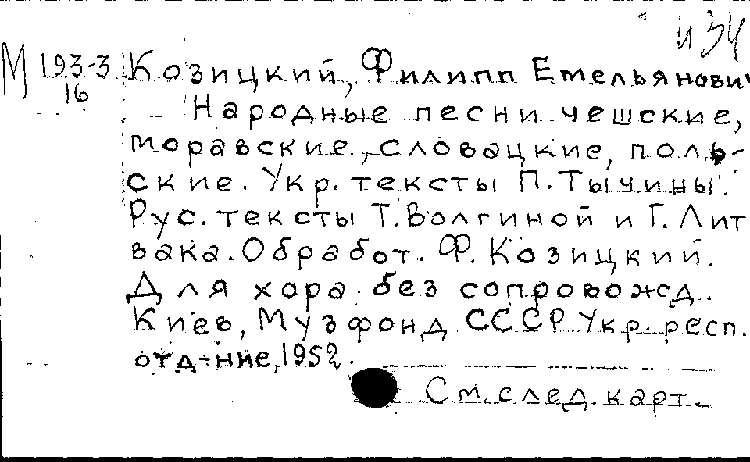 и 34
М 193-3 Козицкий, Филипп Емельянович
16
Народные песни чешские,
моравские, словацкие, поль-
ские. Укр. тексты П. Тычины.
Рус. тексты Т. Волгиной и Г. Лит
вака. Обработ. Ф. Козицкий.
Для хора без сопровожд.
Киев, Музфонд СССР Укр. респ.
отд-ние, 1952.
См. след. карт.